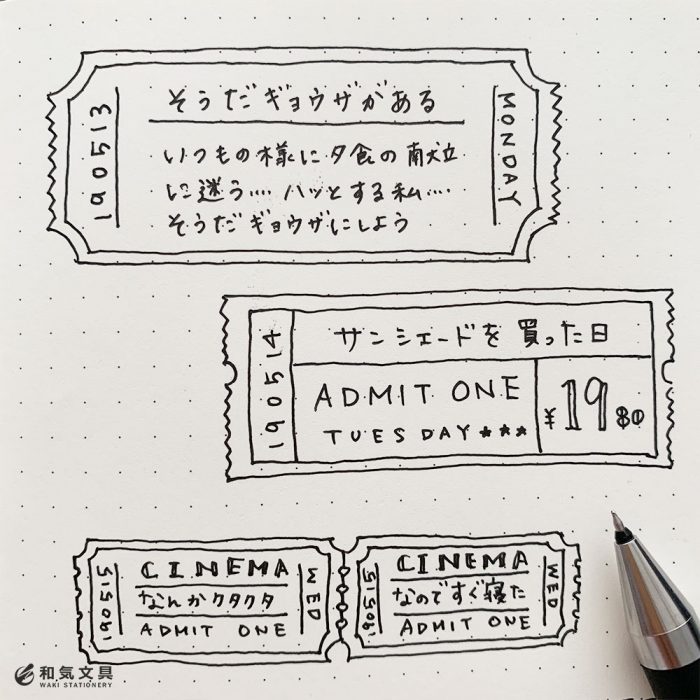 190513
そうだギョウザがある
いつもの様に夕食の献立
に迷う‥‥ ハッとする私‥‥
そうだギョウザにしよう
MONDAY
190514
サンシェードを買った日
ADMIT ONE
TUESDAY★★★
¥1980
190515
CINEMA
なんかクタクタ
ADMIT ONE
WED
190515
CINEMA
なのですぐ寝た
ADMIT ONE
WED
和気文具
WAKI STATIONERY